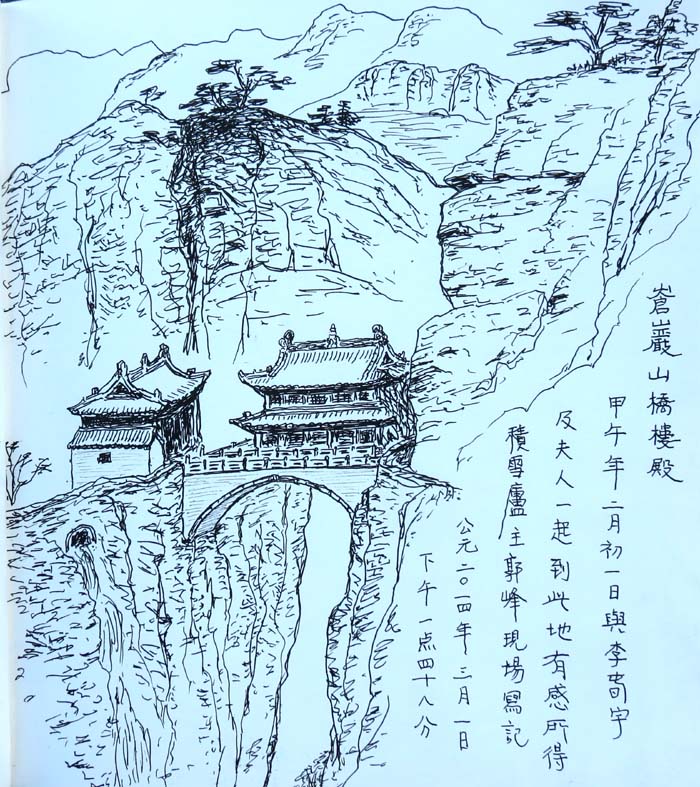 蒼巖山橋樓殿
甲午年二月初一日與李奇宇
及夫人一起到此地有感所得
積雪廬主郭峰現場寫記
公元二〇一四年三月一日
下午一点四十八分